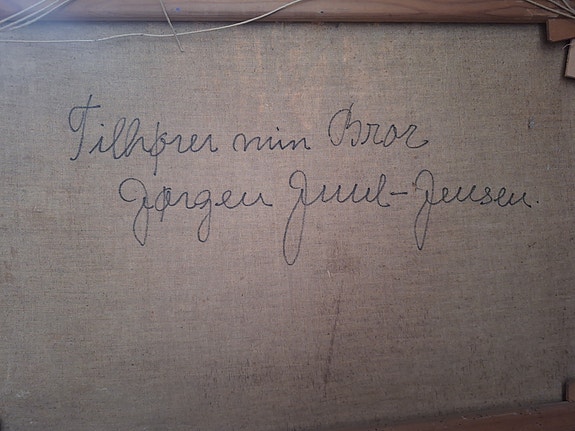 Tilhører min Bror
Jørgen Juul-Jensen.